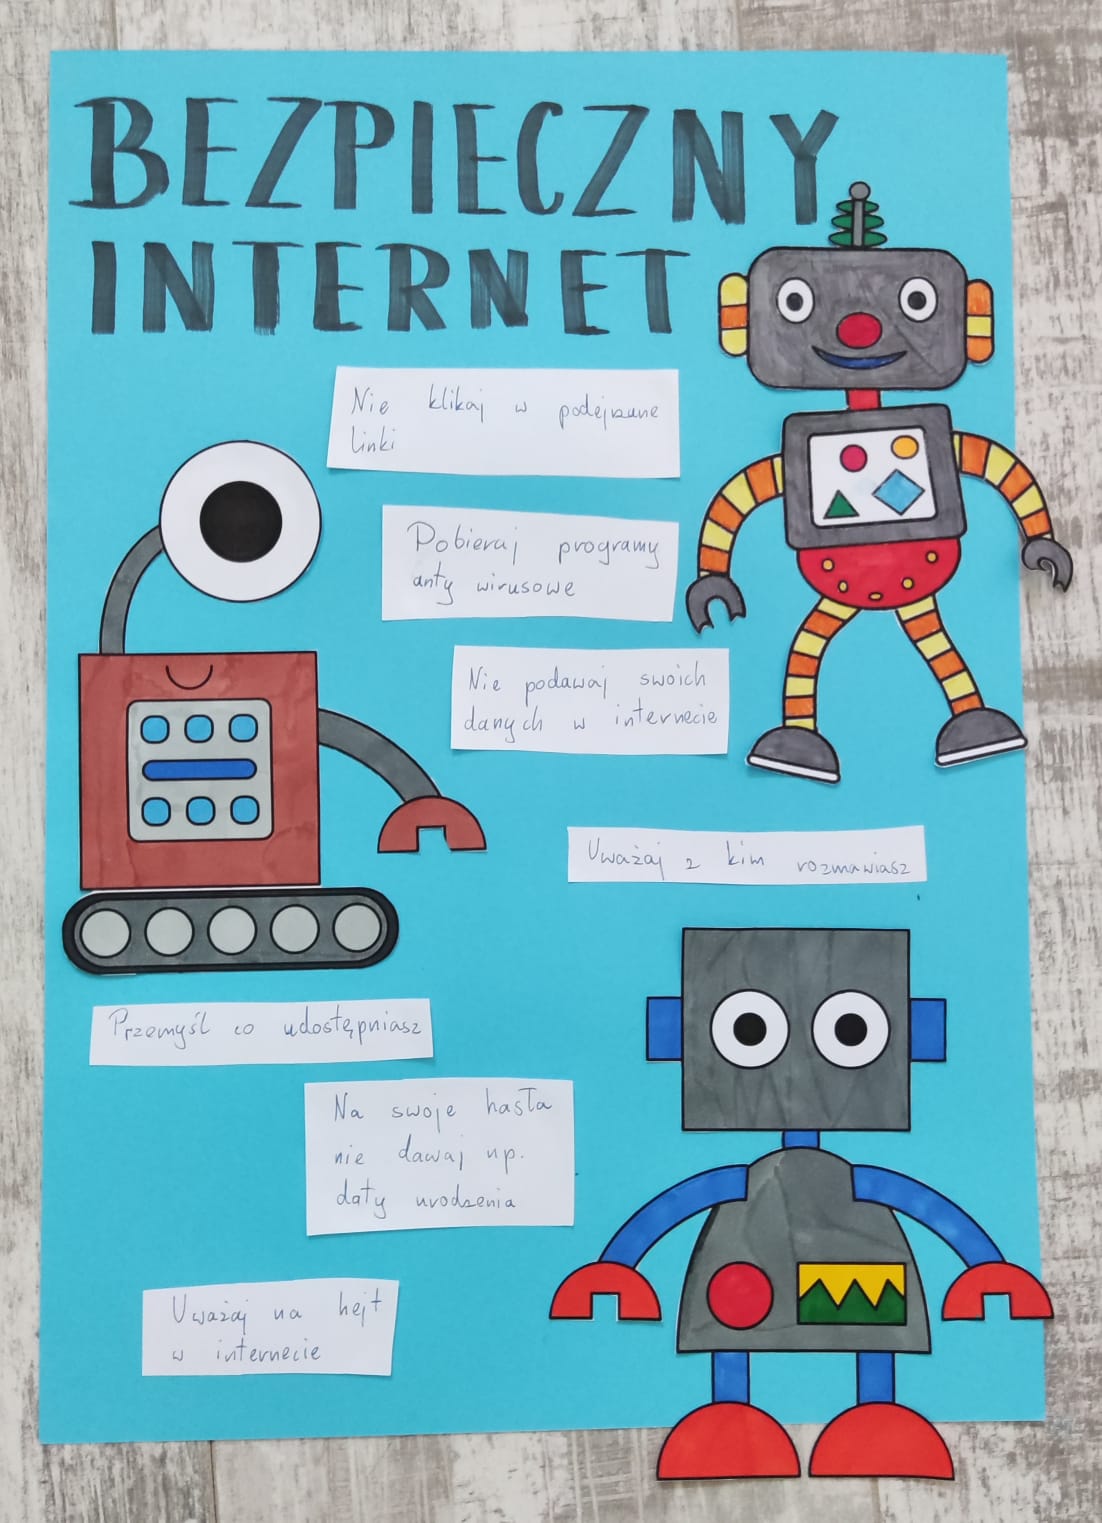 BEZPIECZNY
INTERNET
Nie klikaj w podejzane
linki
Pobieraj programy
anty wirusowe
Nie podawaj swoich
danych w internecie
Uważaj z kim rozmawiasz
Przemyśl co udostępniasz
Na swoje hasła
nie dawaj np.
daty urodzenia
Uważaj na hejt
w internecie